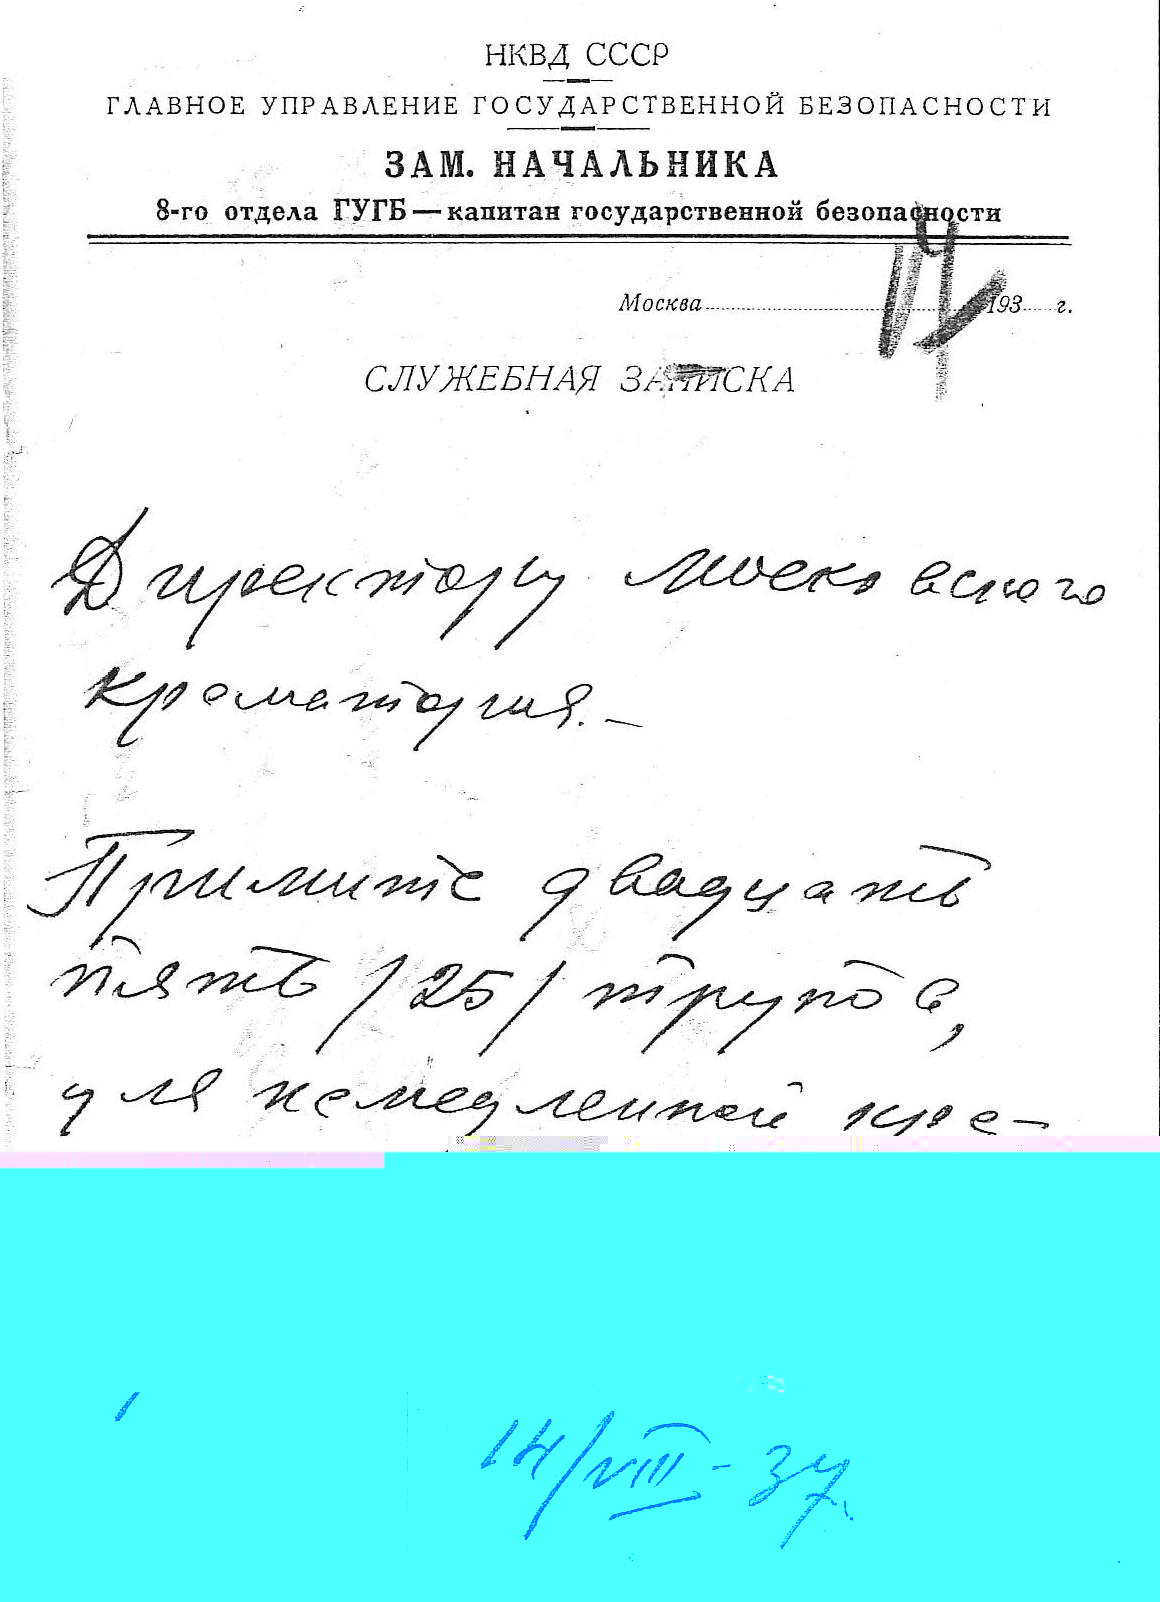 НКВД СССР
ГЛАВНОЕ УПРАВЛЕНИЕ ГОСУДАРСТВЕННОЙ БЕЗОПАСНОСТИ
ЗАМ. НАЧАЛЬНИКА
8-го отдела ГУГБ — капитан государственной безопасности
Москва 193 г.
СЛУЖЕБНАЯ ЗАПИСКА
Директору московского
крематория. —
Примите двадцать
пять /25/ трупов,
для немедленной кре-
14/VIII - 37.